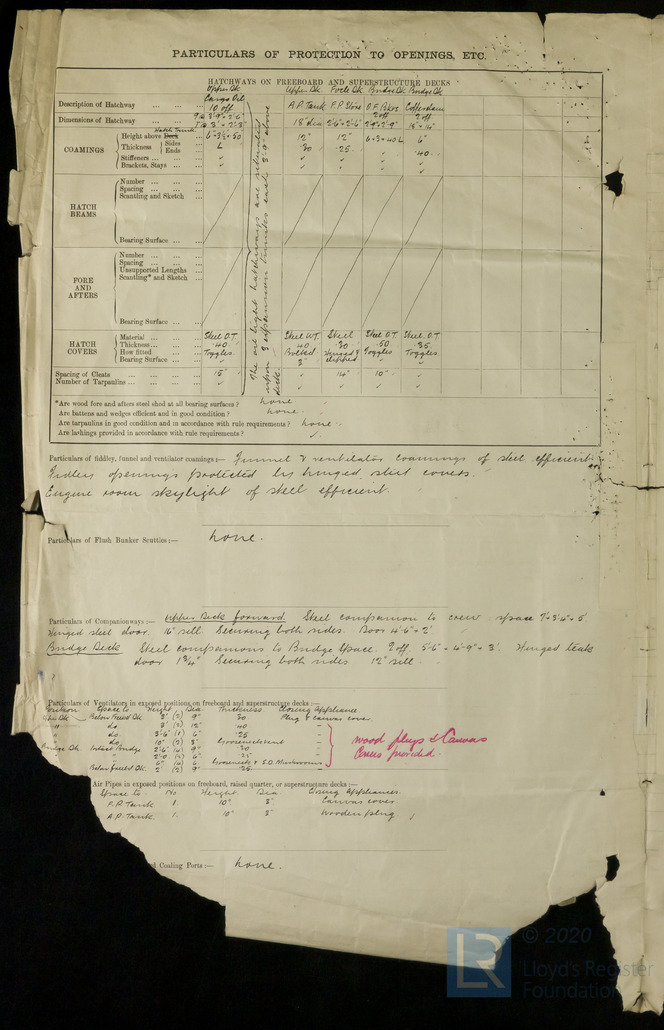 PARTICULARS OF PROTECTION TO OPENINGS, ETC.
HATCHWAYS ON FREEBOARD AND SUPERSTRUCTURE DECKS
Upper Dk Upper Dk Focle Dk Bridge Dk Bridge Dk
Description of Hatchway ... ... ... Cargo Oil 10 off A.P. Tank F.P. Store O.F. Bkrs. 2 off Cofferdam 2 off
Dimensions of Hatchway ... ... 18" dia 2'-6"×2'-6" 2'-9"×2'-9" 18"×14"
COAMINGS
Height above Deck ... ... Hatch Trunk 12" 12" 6"
Thickness Sides ... L .30 .25
Ends ... .40
Stiffeners ... ... ...
Brackets, Stays ... ...
The oil tight hatchways are situated upon 3 expansion trunks each 3'9" above deck.
HATCH BEAMS
Number ... ... ...
Spacing ... ... ...
Scantling and Sketch ...
Bearing Surface ... ...
FORE AND AFTERS
Number ... ... ...
Spacing ... ... ...
Unsupported Lengths ...
Scantling* and Sketch ...
Bearing Surface ... ...
HATCH COVERS
Material ... ... ... Steel O.T. Steel W.T. Steel Steel O.T. Steel O.T.
Thickness ... ... ... .40 .40 .30 .50 .35
How fitted ... ... ... Toggles Bolted Hinged & clipped Toggles Toggles
Bearing Surface ... ... 3"
Spacing of Cleats ... ... ... 15" 14" 10"
Number of Tarpaulins ... ... ...
*Are wood fore and afters steel shod at all bearing surfaces? none
Are battens and wedges efficient and in good condition? none.
Are tarpaulins in good condition and in accordance with rule requirements? none.
Are lashings provided in accordance with rule requirements?
Particulars of fiddley, funnel and ventilator coamings:— Funnel & ventilator coamings of steel efficient.
Fidley openings protected by hinged steel covers.
Engine room skylight of steel efficient.
Particulars of Flush Bunker Scuttles:— none.
Particulars of Companionways:— Upper Deck forward. Steel companion to crew space 7'×3'4"×5'
Hinged steel door. 16" sill. Securing both sides. Door 4'-6"×2'
Bridge Deck Steel companions to Bridge Space. 2 off. 5'-6"×4'-9"×3'. Hinged teak
door 1¾" Securing both sides 12" sill.
?
Particulars of Ventilators in exposed positions on freeboard and superstructure decks:—
Position Space to Height Dia Thickness Closing Appliances.
Upper Dk Below Freebd Dk 3' (2) 9" .30 Plug & canvas cover.
" do 3' (2) 12" .40 "
" do 3'-6" (1) 6" .25 "
" do 10" (2) 3" Gooseneck vent
Bridge Dk Intact Bridge 2'-6" (4) 9" .30 "
Below freebd Dk 2' (2) 9" .35 "
wood plugs & Canvas
Covers provided.
Air Pipes in exposed positions on freeboard, raised quarter, or superstructure decks:—
Space to No Height Dia Closing Appliances.
F.P. Tank 1. 10" 3" Canvas cover
A.P. Tank 1. 10" 3" Wooden plug
d Coaling Ports:— none.
© 2020
LR
Lloyd's Register
Foundation